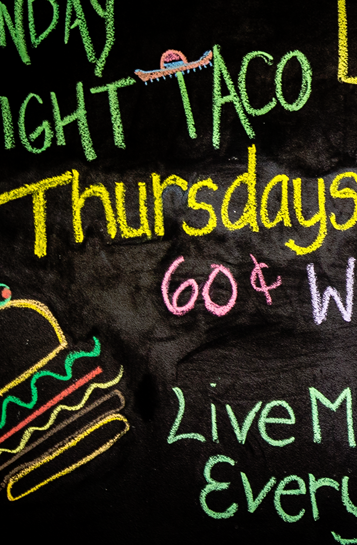 NDAY
IGHT TACO
Thursdays
60¢ W
Live M
Every